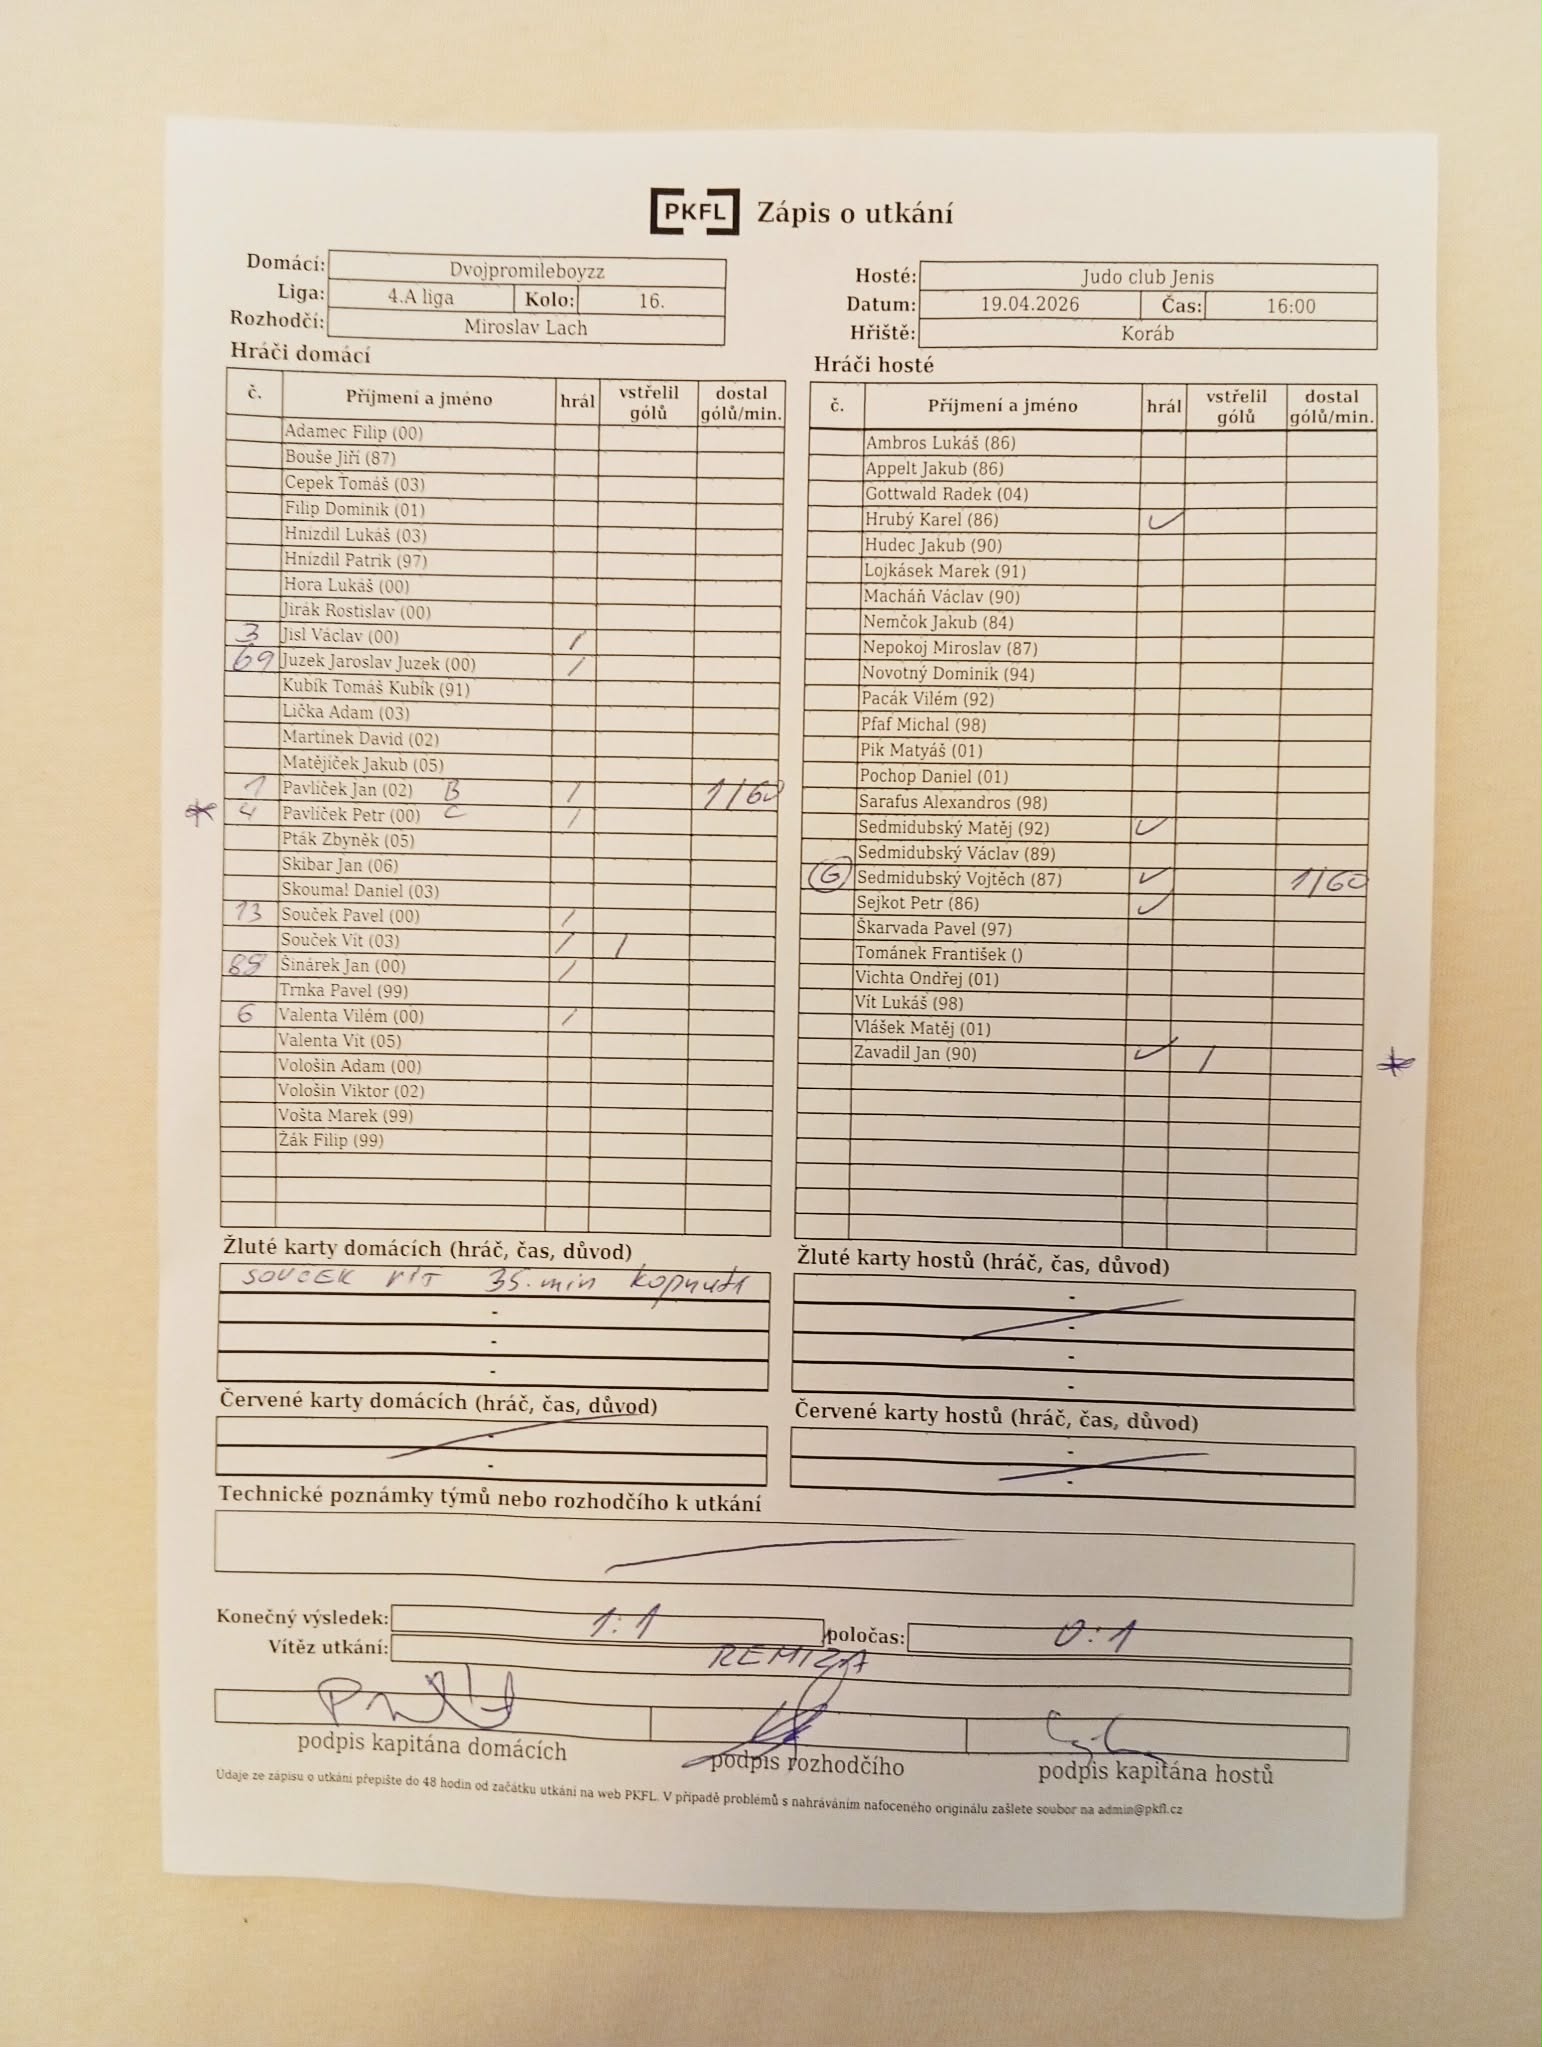 PKFL Zápis o utkání
Domácí: Dvojpromileboyzz
Liga: 4.A liga Kolo: 16.
Rozhodčí: Miroslav Lach
Hosté: Judo club Jenis
Datum: 19.04.2026 Čas: 16:00
Hřiště: Koráb
Hráči domácí
č. Příjmení a jméno hrál vstřelil gólů dostal gólů/min.
Adamec Filip (00)
Bouše Jiří (87)
Cepek Tomáš (03)
Filip Dominik (01)
Hnízdil Lukáš (03)
Hnízdil Patrik (97)
Hora Lukáš (00)
Jirák Rostislav (00)
3 Jisl Václav (00) /
69 Juzek Jaroslav Juzek (00) /
Kubík Tomáš Kubík (91)
Lička Adam (03)
Martínek David (02)
Matějíček Jakub (05)
1 Pavlíček Jan (02) B / 1/60
* 4 Pavlíček Petr (00) C /
Pták Zbyněk (05)
Skibar Jan (06)
Skoumal Daniel (03)
13 Souček Pavel (00) /
Souček Vít (03) / 1
88 Šinárek Jan (00) /
Trnka Pavel (99)
6 Valenta Vilém (00) /
Valenta Vít (05)
Vološin Adam (00)
Vološin Viktor (02)
Vošta Marek (99)
Žák Filip (99)
Hráči hosté
č. Příjmení a jméno hrál vstřelil gólů dostal gólů/min.
Ambros Lukáš (86)
Appelt Jakub (86)
Gottwald Radek (04)
Hrubý Karel (86) ✓
Hudec Jakub (90)
Lojkásek Marek (91)
Macháň Václav (90)
Nemčok Jakub (84)
Nepokoj Miroslav (87)
Novotný Dominik (94)
Pacák Vilém (92)
Pfaf Michal (98)
Pik Matyáš (01)
Pochop Daniel (01)
Sarafus Alexandros (98)
Sedmidubský Matěj (92) ✓
Sedmidubský Václav (89)
G Sedmidubský Vojtěch (87) ✓ 1/60
Sejkot Petr (86) ✓
Škarvada Pavel (97)
Tománek František ()
Vichta Ondřej (01)
Vít Lukáš (98)
Vlášek Matěj (01)
Zavadil Jan (90) ✓ 1 *
Žluté karty domácích (hráč, čas, důvod)
SOUČEK VÍT 35. min kopnutí
-
-
-
Žluté karty hostů (hráč, čas, důvod)
-
-
-
-
Červené karty domácích (hráč, čas, důvod)
-
-
Červené karty hostů (hráč, čas, důvod)
-
-
Technické poznámky týmů nebo rozhodčího k utkání
Konečný výsledek: 1:1 poločas: 0:1
Vítěz utkání: REMIZA
podpis kapitána domácích podpis rozhodčího podpis kapitána hostů
Údaje ze zápisu o utkání přepište do 48 hodin od začátku utkání na web PKFL. V případě problémů s nahráváním nafoceného originálu zašlete soubor na admin@pkfl.cz